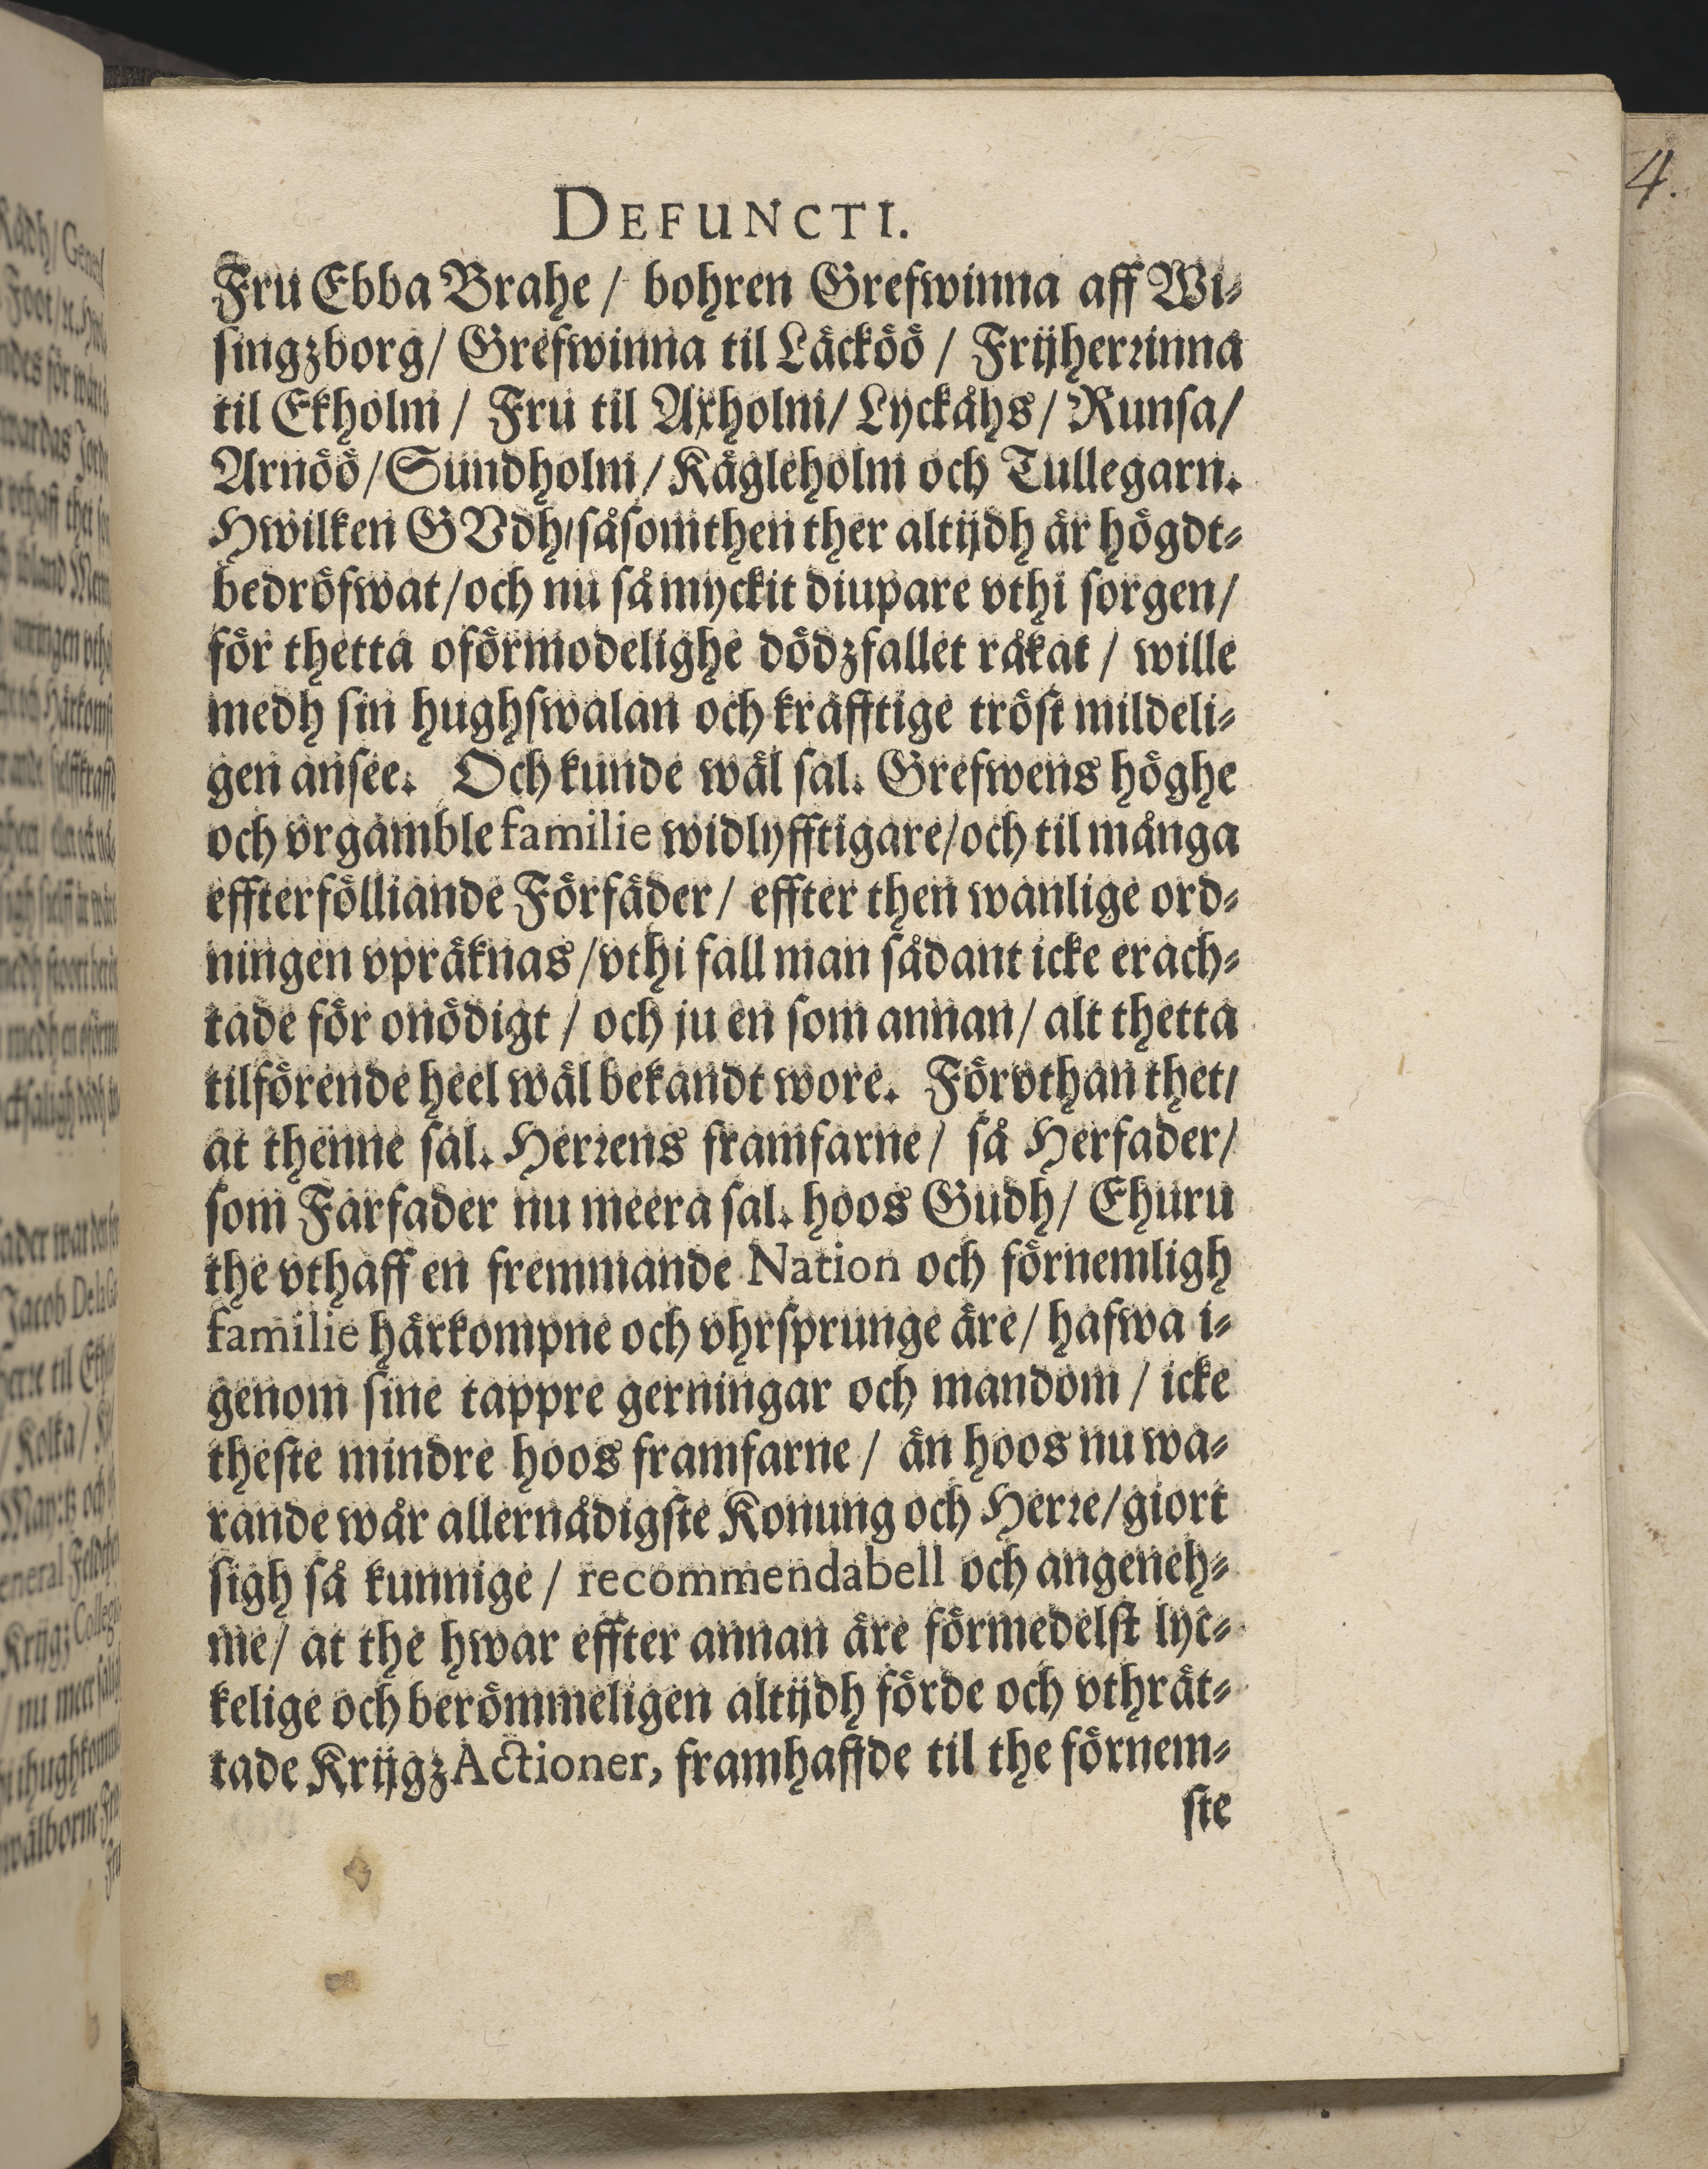 DEFUNCTI.
Fru Ebba Brahe / bohren Grefwinna aff Wi-
singzborg / Grefwinna til Läcköö / Frijherrinna
til Ekholm / Fru til Axholm / Lyckåhs / Runsa /
Arnöö / Sundholm / Kägleholm och Tullegarn.
Hwilken GVdh / såsom then ther altijdh är högdt-
bedröfwat / och nu så myckit diupare vthi sorgen /
för thetta oförmodelighe dödzfallet råkat / wille
medh sin hughswalan och kräfftige tröst mildeli-
gen ansee. Och kunde wäl sal. Grefwens höghe
och vrgamble familie widlyfftigare / och til många
effterfölliande Förfäder / effter then wanlige ord-
ningen vpräknas / vthi fall man sådant icke erach-
tade för onödigt / och ju en som annan / alt thetta
tilförende heel wäl bekandt wore. Förvthan thet /
at thenne sal. Herrens framfarne / så Herfader /
som Farfader nu meera sal. hoos Gudh / Ehuru
the vthaff en fremmande Nation och förnemligh
familie härkompne och vhrsprunge äre / hafwa i-
genom sine tappre gerningar och mandom / icke
theste mindre hoos framfarne / än hoos nu wa-
rande wår allernådigste Konung och Herre / giort
sigh så kunnige / recommendabell och angeneh-
me / at the hwar effter annan äre förmedelst lyc-
kelige och berömmeligen altijdh förde och vthrät-
tade Krijgz Actioner, framhaffde til the förnem-
ste
4.